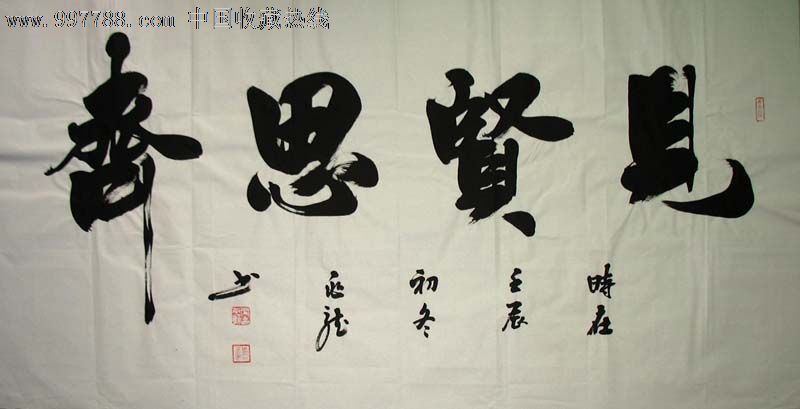 www.997788.com 中国收藏热线
見賢思齊
時在
壬辰
初冬
龍
书